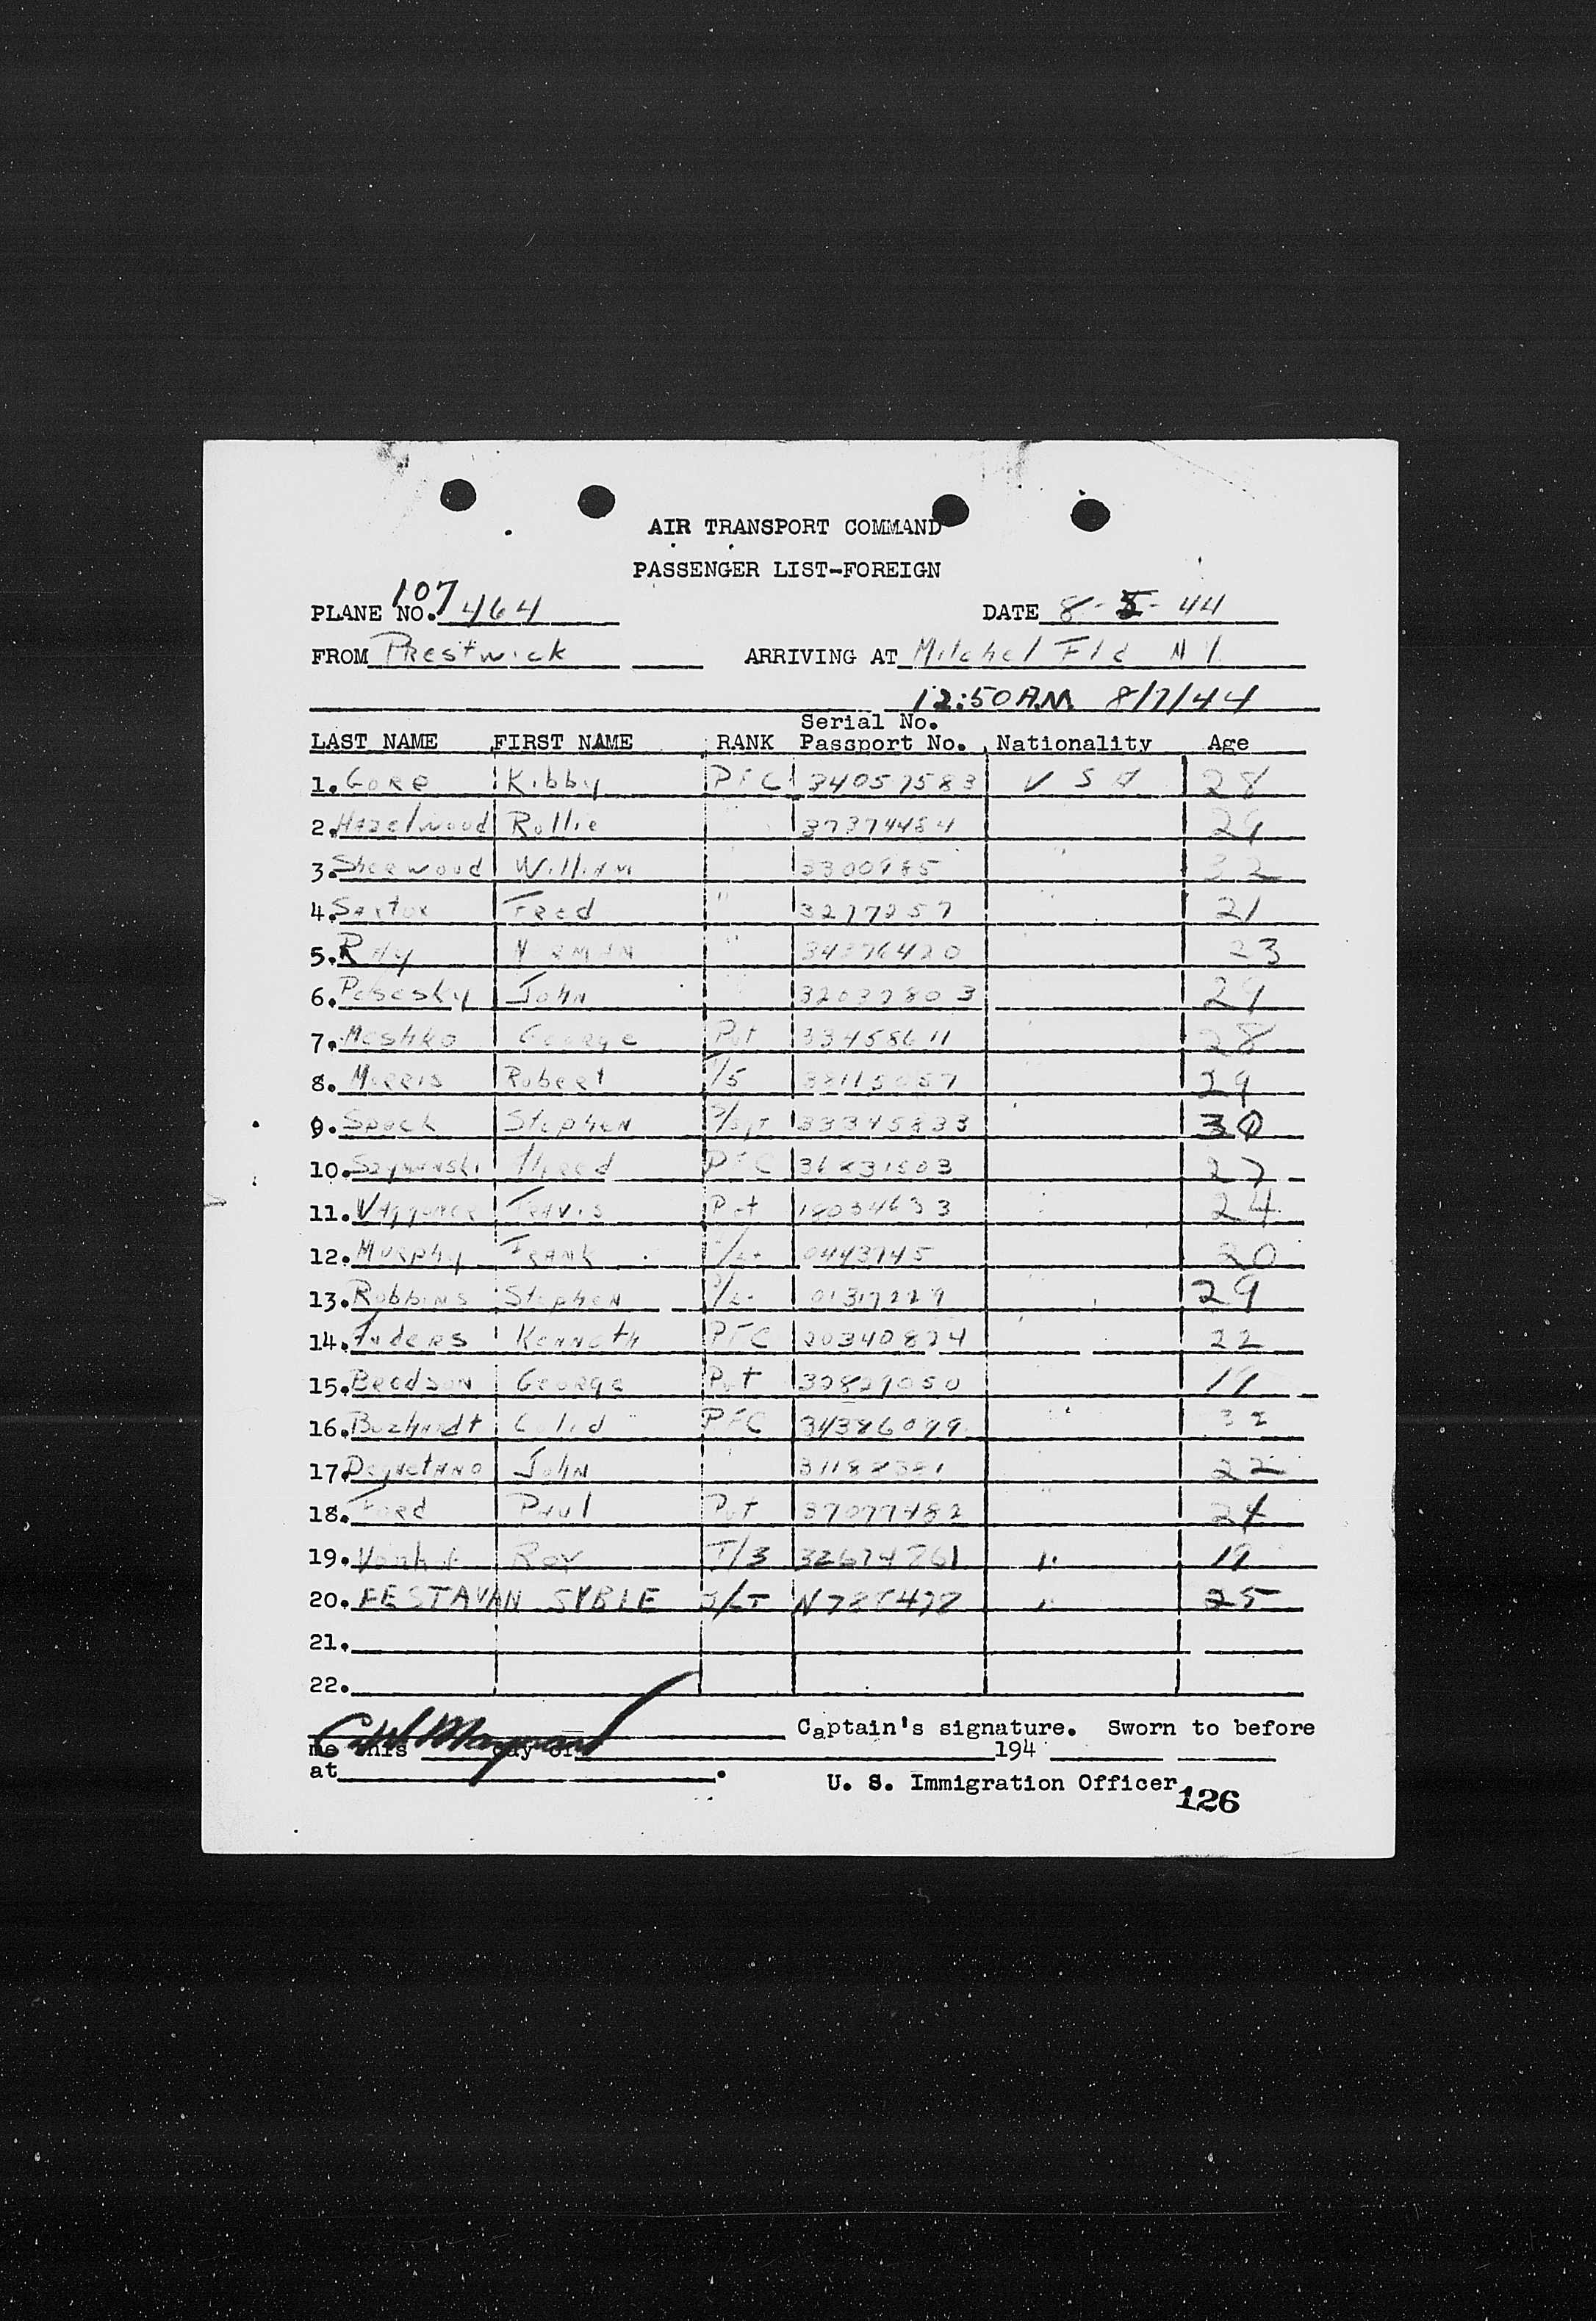 AIR TRANSPORT COMMAND
PASSENGER LIST-FOREIGN
107
PLANE NO. 464 DATE 8-5-44
FROM Prestwick ARRIVING AT Mitchel Fld NY
12:50 A.M. 8/7/44
Serial No.
LAST NAME FIRST NAME RANK Passport No. Nationality Age
1. Gore Kibby PFC 34057583 U S A 28
2. Hazelwood Rollie 37374484 29
3. Sherwood William 3300985 32
4. Sartor Fred " 3277257 21
5. Ray Norman " 34376420 23
6. John 32037803 29
7. Meshko George Pvt 33458611 28
8. Morris Robert T/5 38115057 29
9. Spock Stephen 33345833 30
10. Szymanski PFC 36831503 27
11. Travis Pvt 18034633 24
12. Murphy Frank 0443745 20
13. Robbins Stephen 01317229 29
14. Kenneth PFC 20340824 22
15. Beedson George Pvt 32829050 19
16. PFC 34386099 32
17. John 31188381 22
18. Ford Paul Pvt 37077482 24
19. Roy T/3 32674761 " 19
20. FESTAVAN SYBLE " 25
21.
22.
Captain's signature. Sworn to before
me this day of 194
at .
U. S. Immigration Officer
126